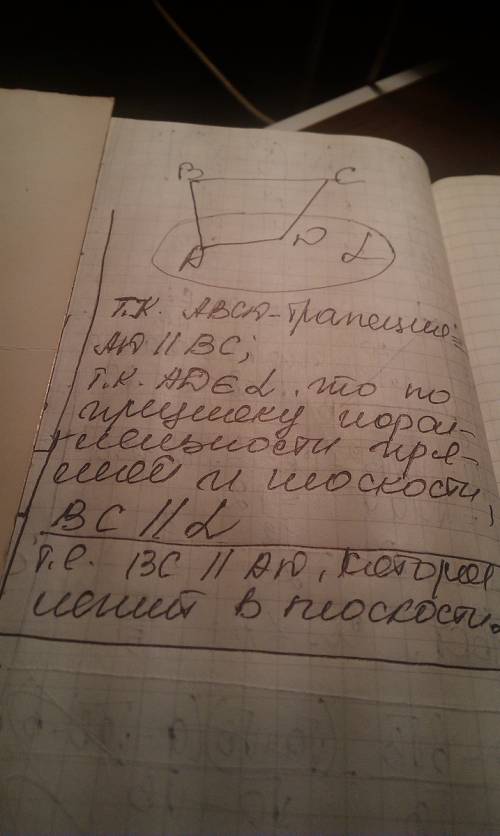 B C
A D α
Т.к. ABCD-трапеция ⇒
AD || BC;
т.к. AD ∈ α, то по
признаку парал-
лельности пря-
мой и плоскости,
BC || α
т.е. BC || AD, которая
лежит в плоскости α